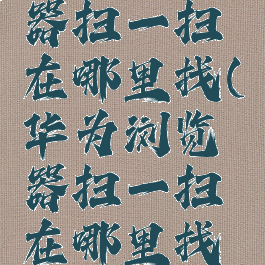 器扫一扫
在哪里找(
华为浏览
器扫一扫
在哪里找